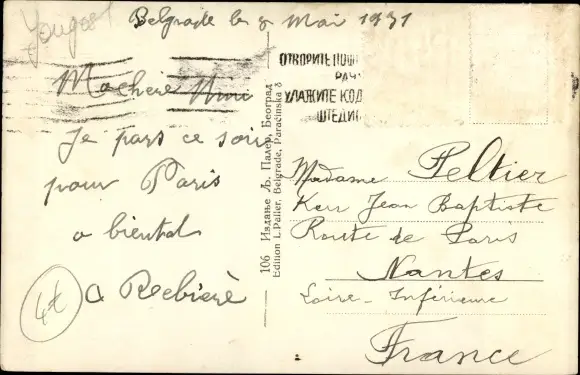 Belgrade le 8 Mai 1931
Ma chère Nini
Je pars ce soir
pour Paris
a bientot
a Rebierè
4t
106 Издање Љ. Палер, Београд
Edition L. Paller, Belgrade, Paračinska 8
ОТВОРИТЕ ПОШ
РАЧ
УЛАЖИТЕ КОД
ШТЕДИ
Madame Peltier
Kerr Jean Baptiste
Route de Paris
Nantes
Loire-Inférieure
France